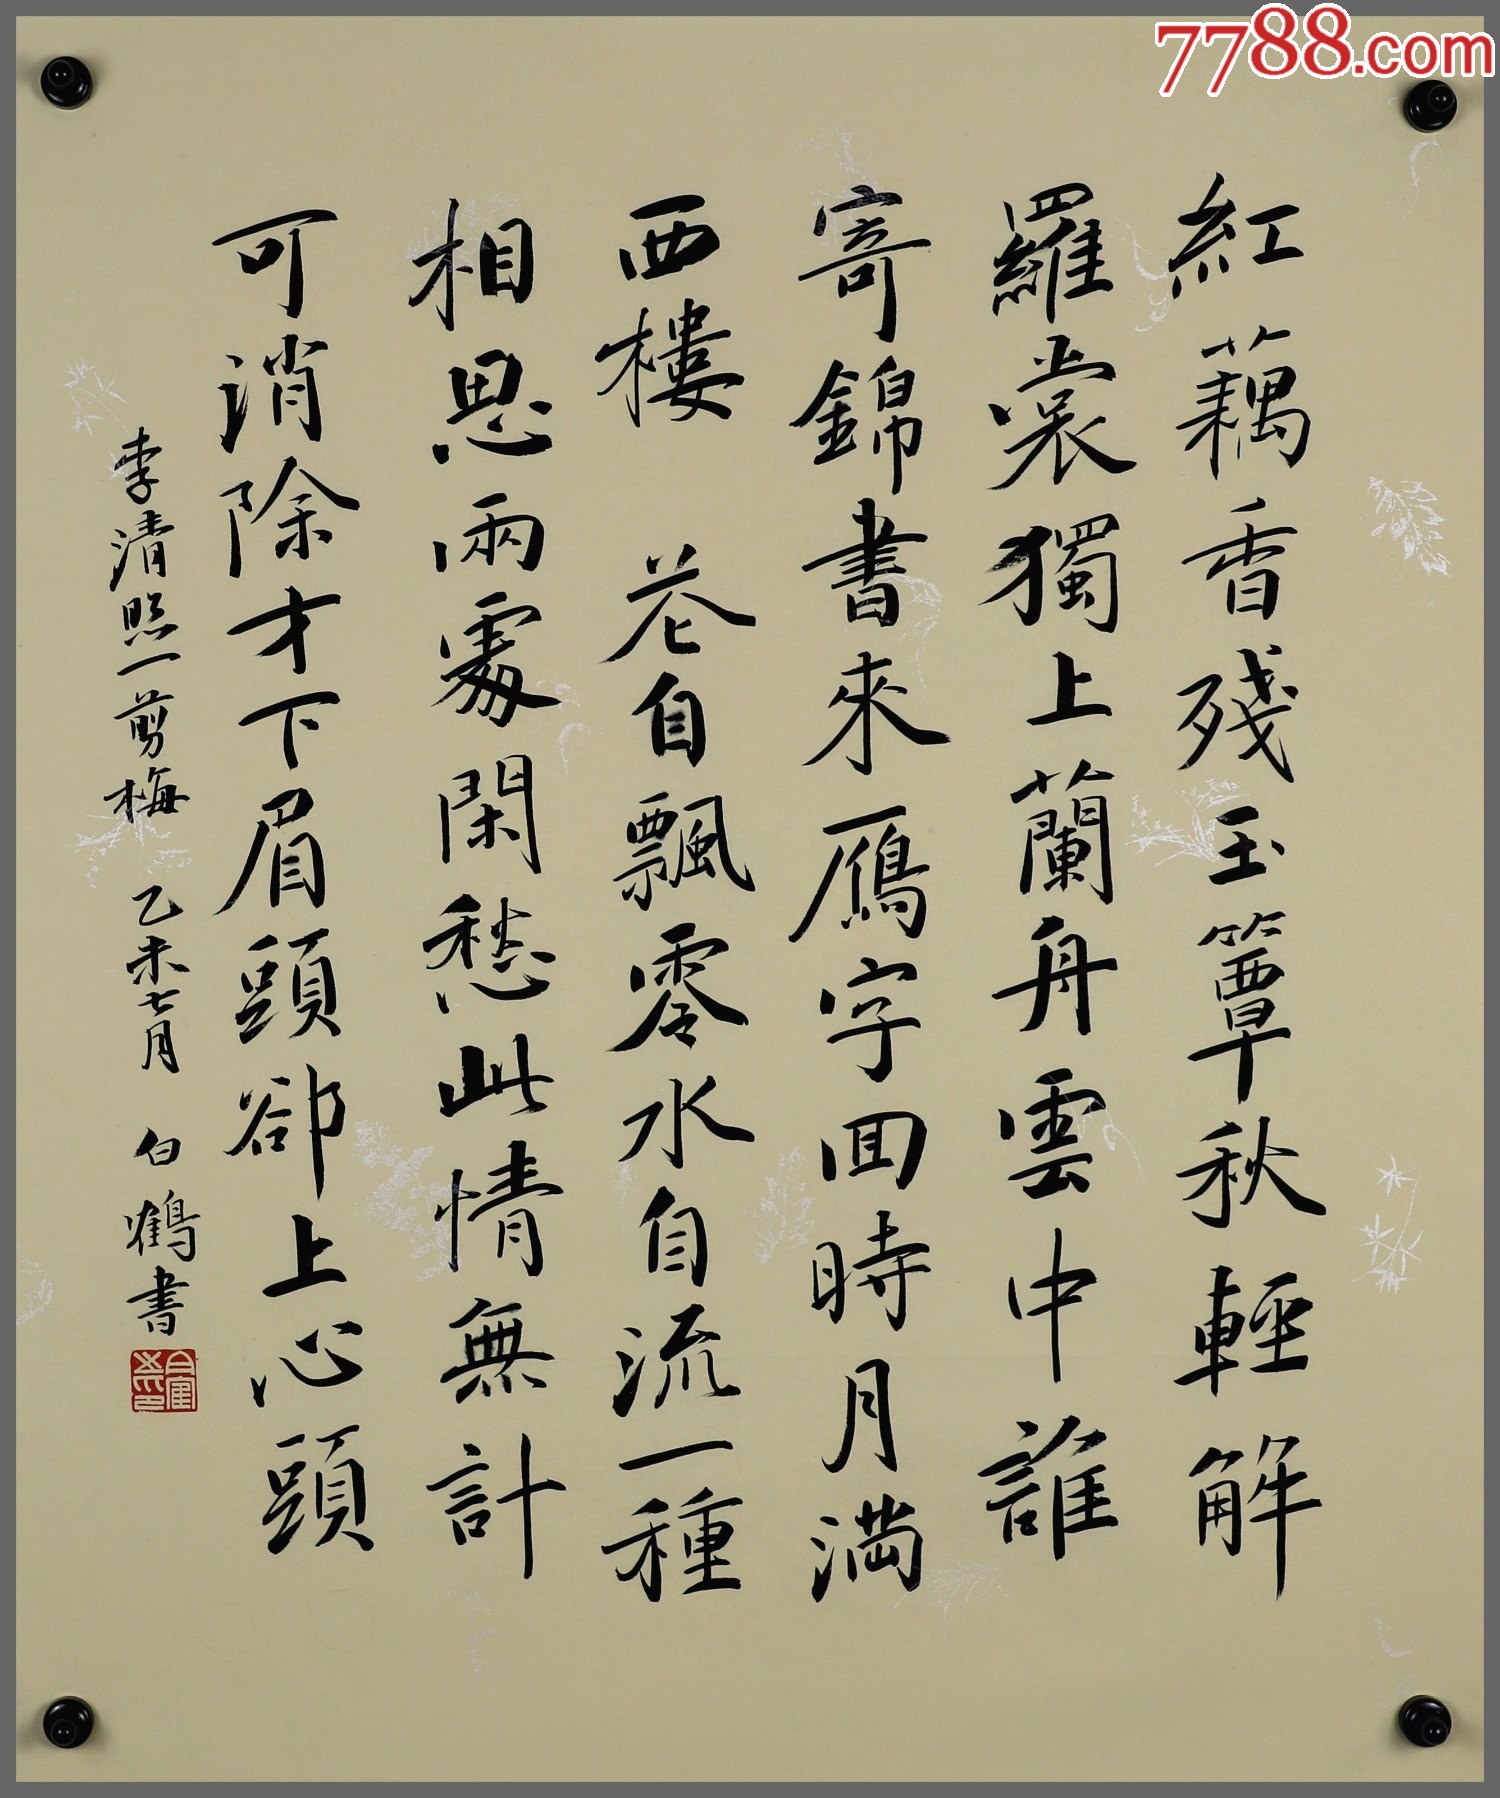 7788.com
紅藕香殘玉簟秋輕解
羅裳獨上蘭舟雲中誰
寄錦書來鴈字回時月满
西樓 花自飄零水自流一種
相思兩處閑愁此情無計
可消除才下眉頭卻上心頭
李清照一剪梅 乙未七月 白鶴書